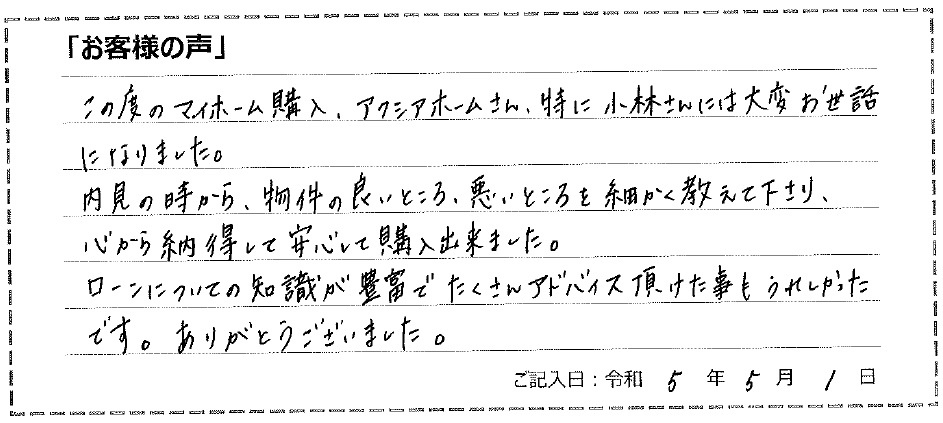 「お客様の声」
この度のマイホーム購入、アクシアホームさん、特に小林さんには大変お世話
になりました。
内見の時から、物件の良いところ、悪いところを細かく教えて下さり、
心から納得して安心して購入出来ました。
ローンについての知識が豊富でたくさんアドバイス頂けた事もうれしかった
です。ありがとうございました。
ご記入日：令和 5 年 5 月 1 日